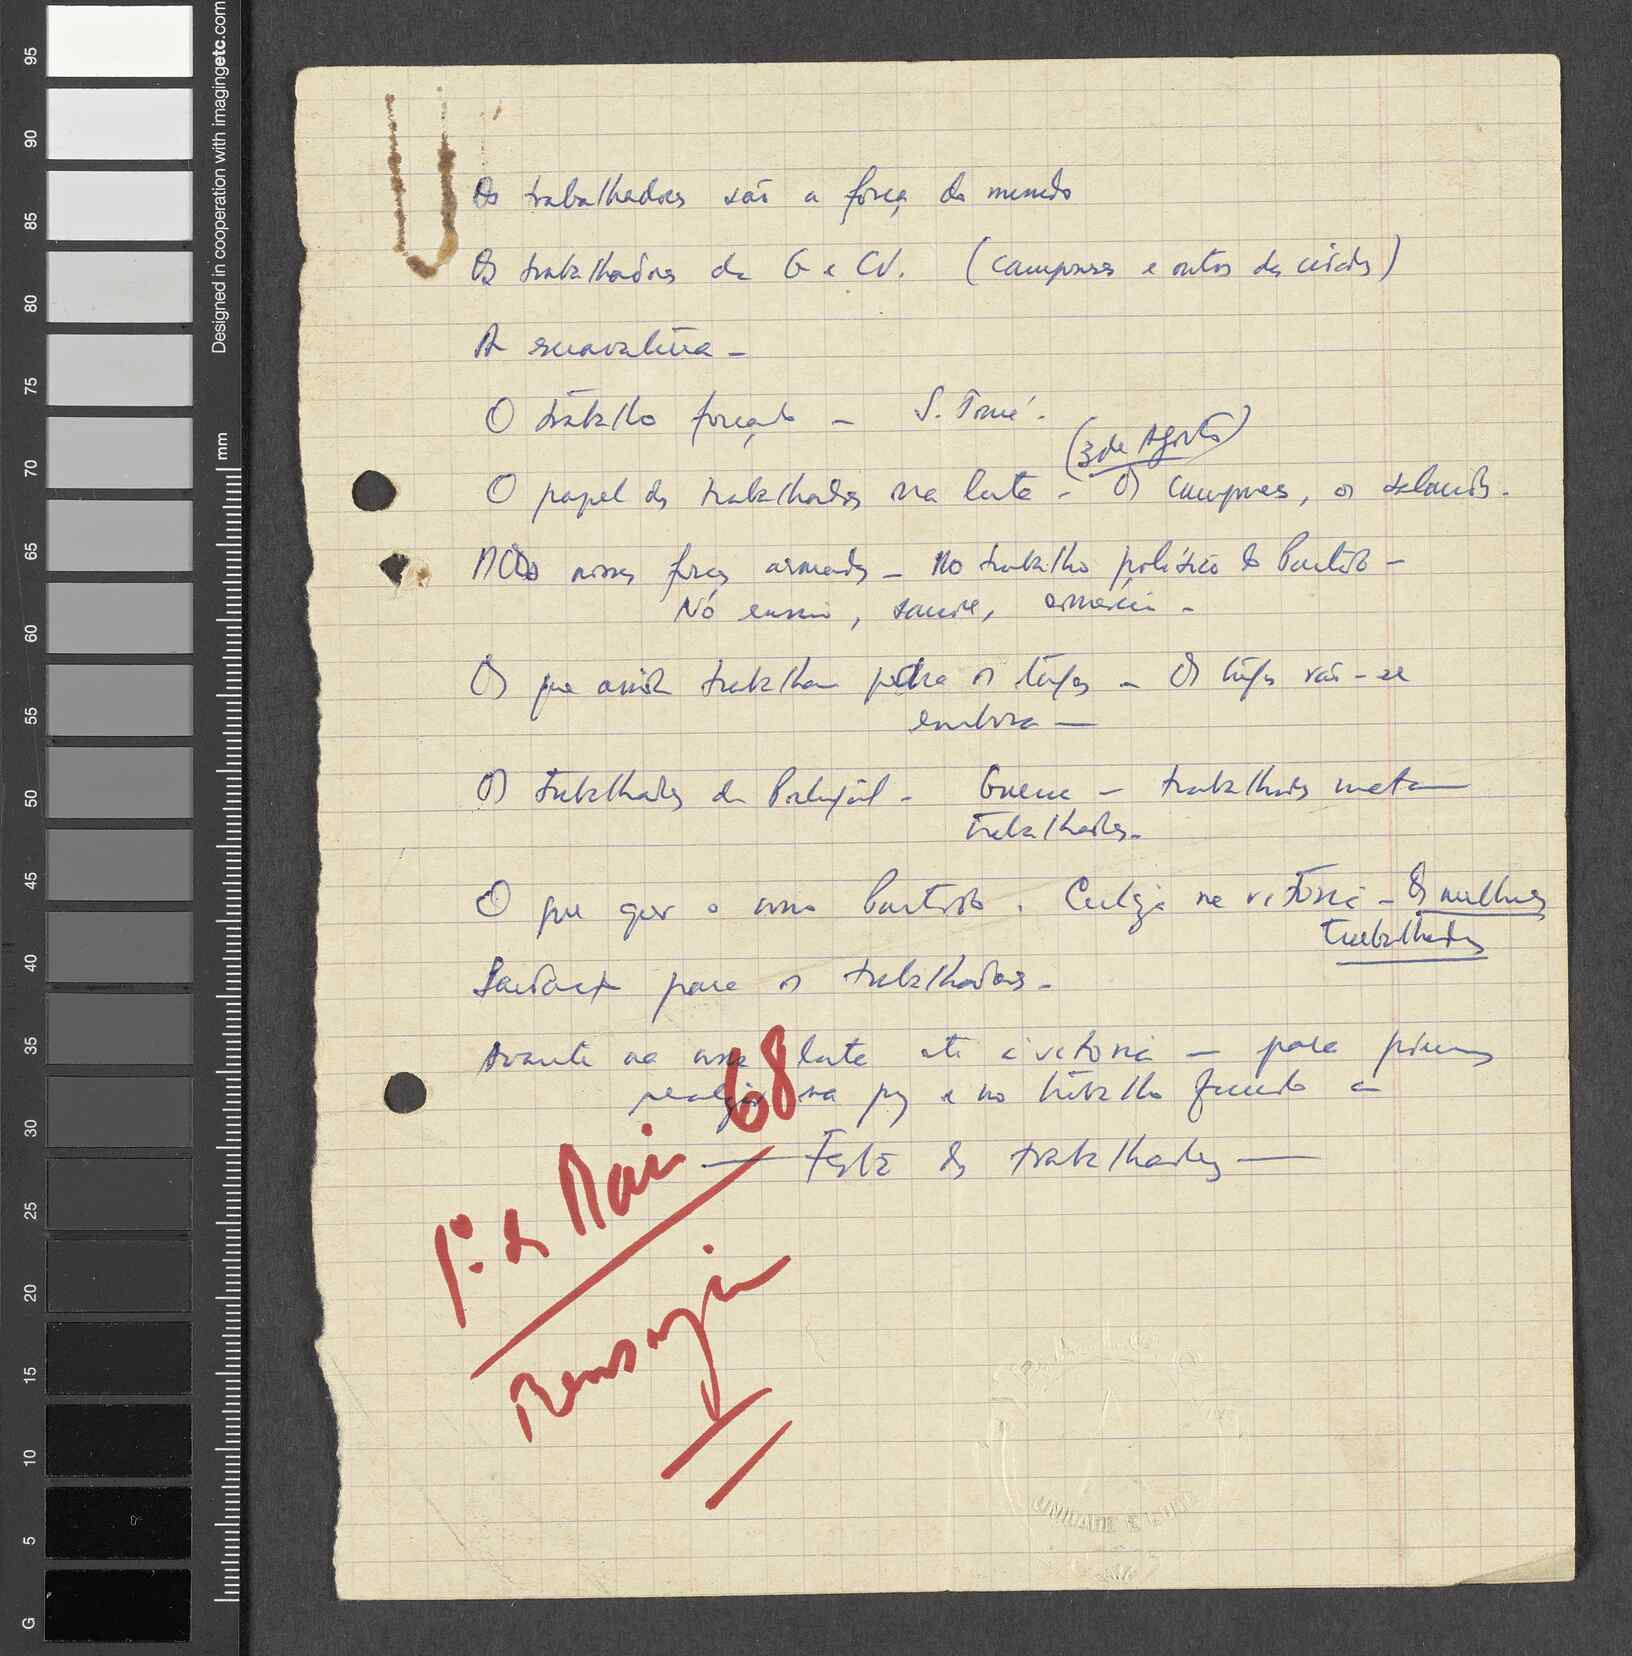 Os trabalhadores são a força do mundo
Os trabalhadores da G e CV. (camponeses e outros das cidades)
A escravatura -
O trabalho forçado - S. Tomé.
(3 de Agosto)
O papel dos trabalhadores na luta - Os camponeses, os
nossas forças armadas - No trabalho político do Partido -
No ensino, saúde,
Os que ainda trabalham para os tugas - Os tugas vão-se
embora -
Os trabalhadores de Portugal - Guerra - trabalhadores matam
trabalhadores -
O que quer o nosso Partido. Certeza na vitória - As mulheres
trabalhadoras
para os trabalhadores -
Avante na nossa luta até à vitória - para
na paz e no trabalho fecundo a
- Festa dos trabalhadores -
1º. de Maio 68
UNIDADE E LUTA
95
90
85
80
75
70
65
60
55
50
45
40
35
30
25
20
15
10
5
G
mm
Designed in cooperation with imagingetc.com